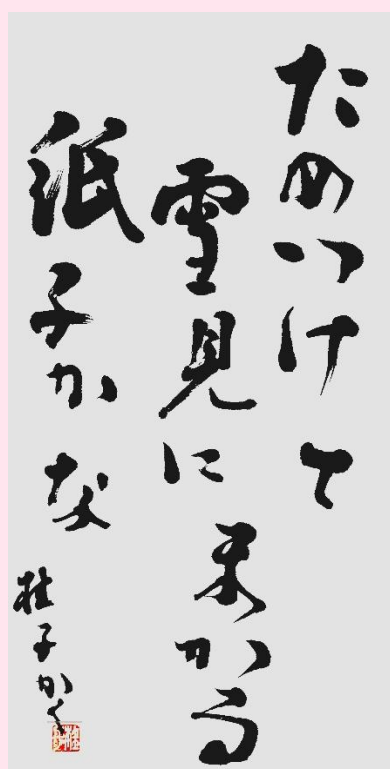 ためつけて
雪見にまかる
紙子かな
桂子かく